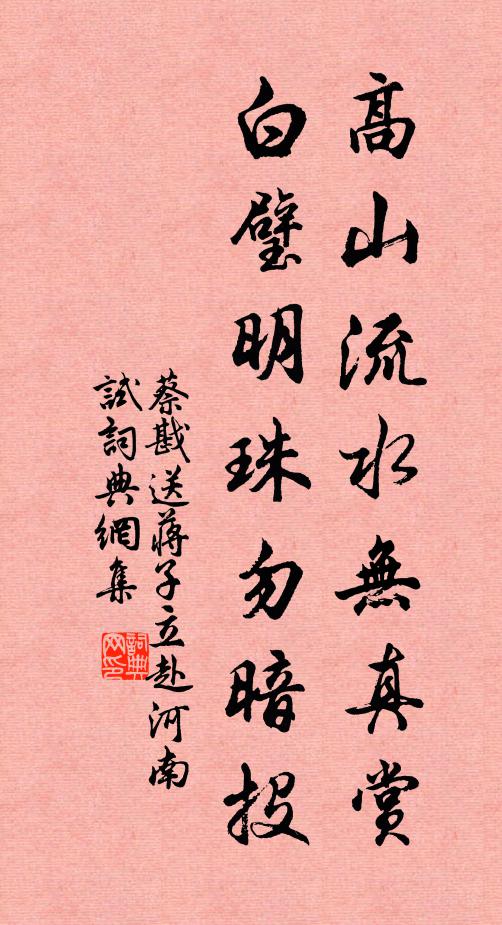 高山流水無真賞
白璧明珠勿暗投
蔡戡送蔣子立赴河南
試詞典網集
詞典网印